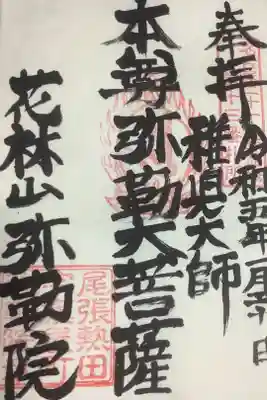 奉拝 令和五年
稚児大師
本尊弥勒大菩薩
花林山弥勒院
尾張熱田